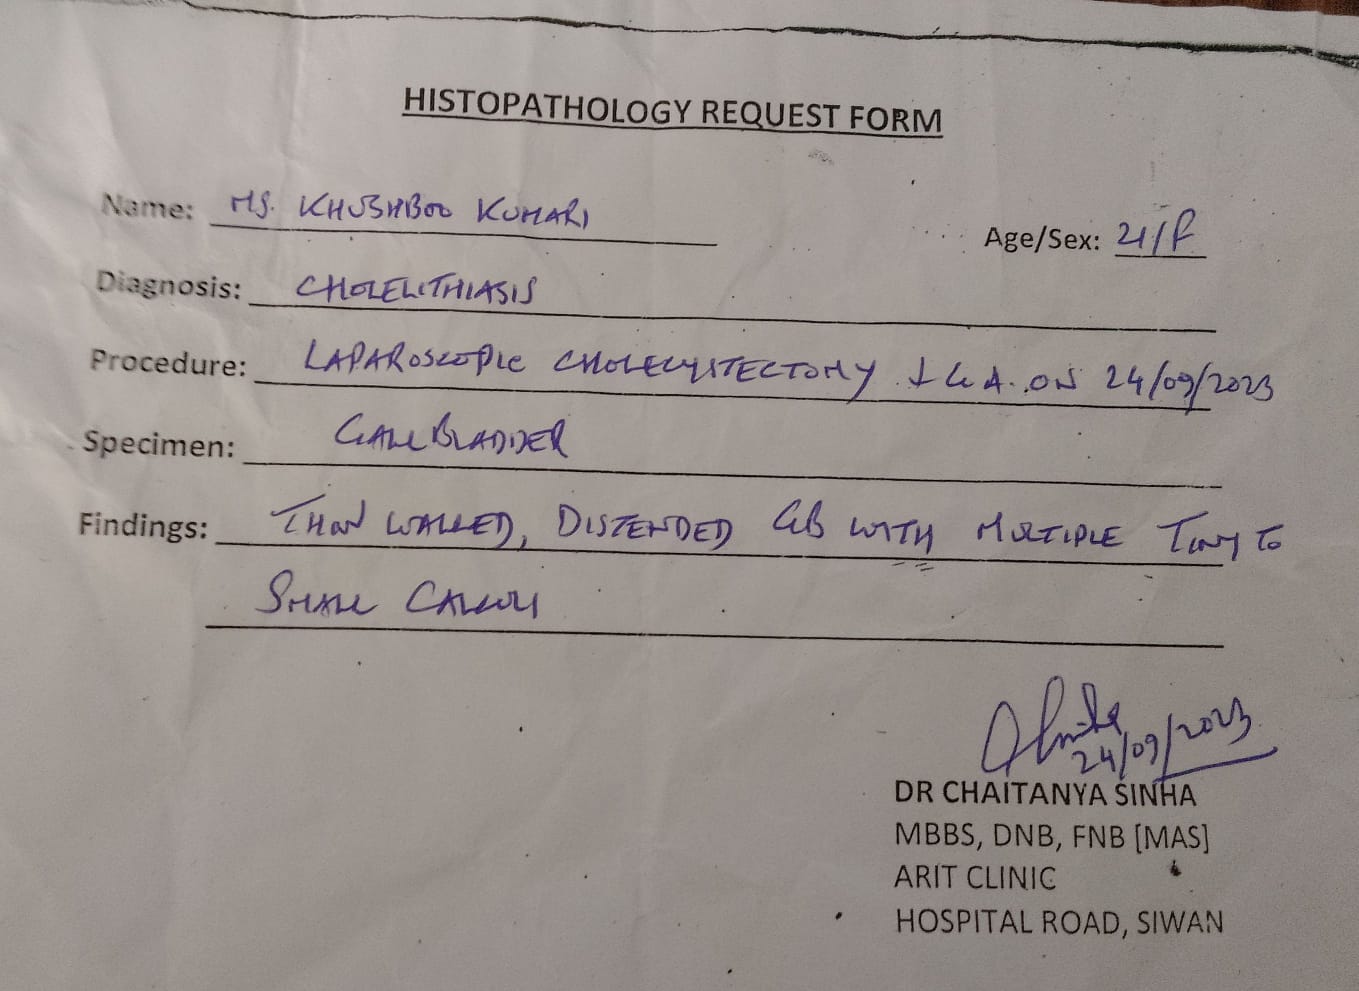 HISTOPATHOLOGY REQUEST FORM
Name: MS. KHUSHBOO KUMARI
Age/Sex: 21/F
Diagnosis: CHOLELITHIASIS
Procedure: LAPAROSCOPIC CHOLECYSTECTOMY ↓ G.A. ON 24/09/2023
Specimen: GALL BLADDER
Findings: THIN WALLED, DISTENDED GB WITH MULTIPLE TINY TO
SMALL CALCULI
24/09/2023
DR CHAITANYA SINHA
MBBS, DNB, FNB [MAS]
ARIT CLINIC
HOSPITAL ROAD, SIWAN